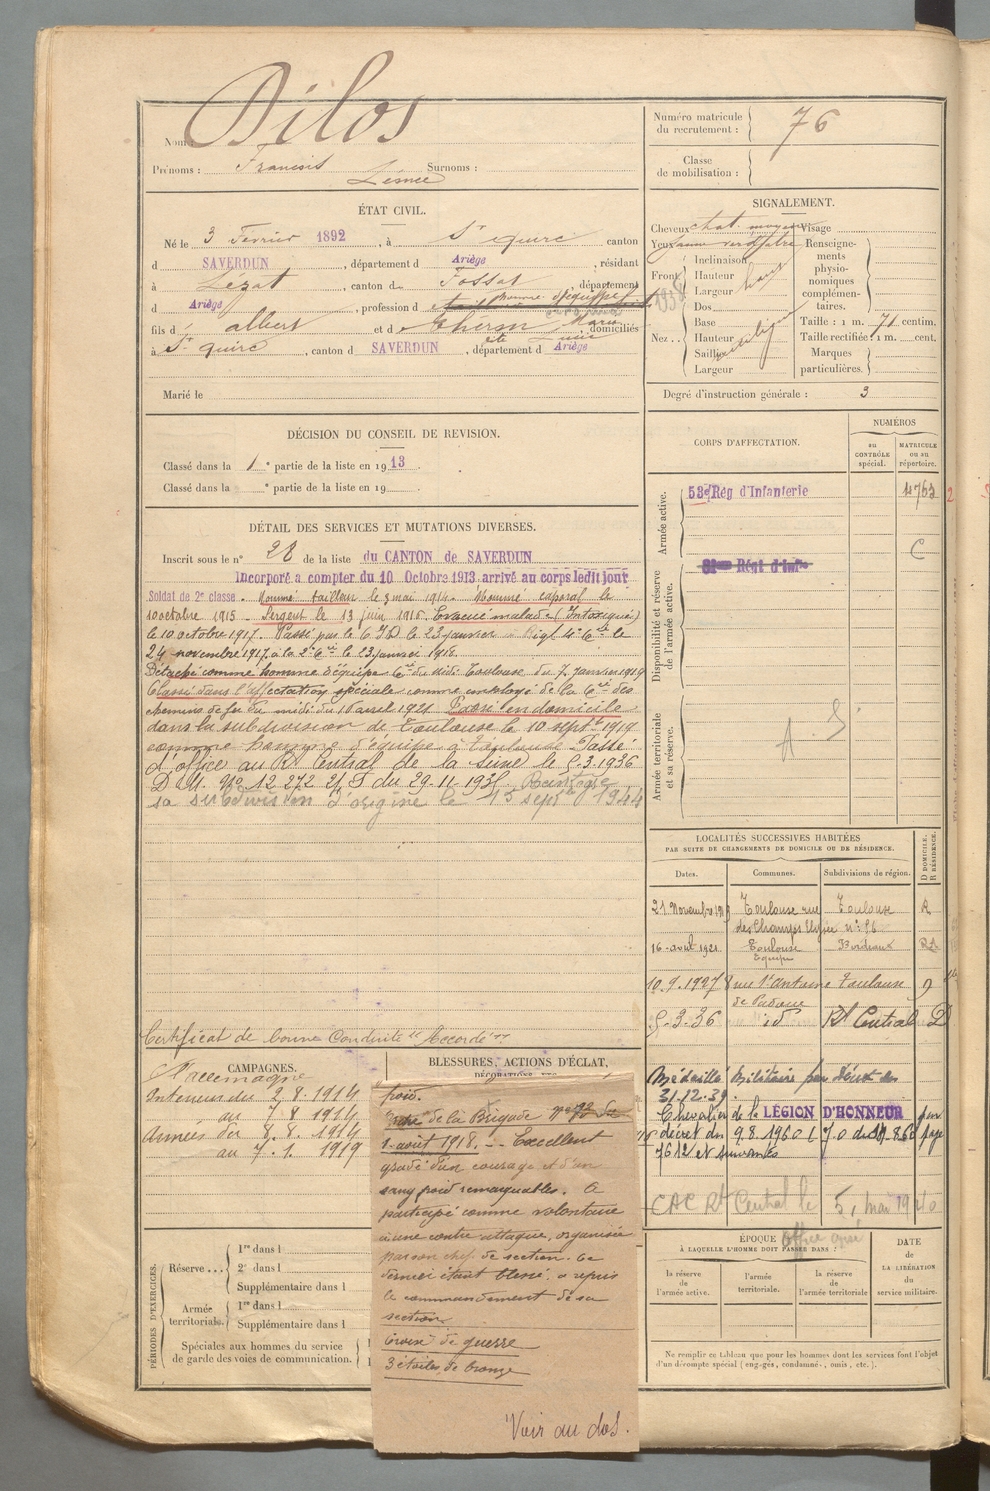 Nom Dilos
Prénoms : Francois Surnoms :
ÉTAT CIVIL.
Né le 3 Février 1892, à St quirc canton
d SAVERDUN, département d Ariège, résidant
à Lézat, canton d Fossat, département
d Ariège, profession d homme d'équipe
fils d albert et d Thérin Marie domiciliés
à St quirc, canton d SAVERDUN, département d Ariège
Marié le
DÉCISION DU CONSEIL DE REVISION.
Classé dans la 1e partie de la liste en 1913.
Classé dans la e partie de la liste en 19
DÉTAIL DES SERVICES ET MUTATIONS DIVERSES.
Inscrit sous le n° 28 de la liste du CANTON de SAVERDUN
Incorporé a compter du 10 Octobre 1913 arrivé au corps ledit jour
Soldat de 2e classe. Nommé tailleur le 3 mai 1914. Nommé caporal le
10 octobre 1915 - Sergent le 13 juin 1916. Evacué malade (Intoxiqué)
le 10 octobre 1917. Passé par le 6 ID le 23 janvier
24 novembre 1917 à la 2e Cie le 23 janvier 1918.
Détaché comme homme d'équipe Cie du midi Toulouse du 7 janvier 1919
Classé dans l'affectation spéciale comme employé de la Cie des
chemins de fer du midi du 16 avril 1921 en domicile
dans la subdivision de Toulouse le 10 septbre 1919
comme homme d'équipe à Toulouse Passé
d'office au Rt Central de la Seine le 5.3.1936
D.M. N° 12 272 du 29.11.193
sa subdivision d'origine le 15 septbre 1944
Certificat de bonne Conduite "Accordé"
Numéro matricule du recrutement : 76
Classe de mobilisation :
SIGNALEMENT.
Cheveux chat. moyen Visage
Yeux jaune verdâtre Renseignements physionomiques complémentaires.
Front Inclinaison
Hauteur
Largeur
Nez.. Dos
Base
Hauteur
Saillie
Largeur
Taille : 1 m. 71 centim.
Taille rectifiée : 1 m. cent.
Marques particulières.
Degré d'instruction générale : 3
CORPS D'AFFECTATION.
NUMÉROS
au CONTRÔLE spécial.
MATRICULE ou au répertoire.
Armée active.
53e Rég d'Infanterie 4763
C
Régt d'Infie
Disponibilité et réserve de l'armée active.
Armée territoriale et sa réserve.
A. S.
LOCALITÉS SUCCESSIVES HABITÉES
PAR SUITE DE CHANGEMENTS DE DOMICILE OU DE RÉSIDENCE.
Dates. Communes. Subdivisions de région. D DOMICILE. R RÉSIDENCE.
21 Novembre 19 Toulouse rue Toulouse R
des Champs Elysée n° 96
16 avril 1921 Toulouse Bordeaux
Equipe
10.9.1927 8 rue St Antoine Toulouse
de Padoue
5-3-36 id Rt Central D
Médaille Militaire par
31.12.39.
Chevalier de la LÉGION D'HONNEUR par
décret du 9.8.1960 page
7612 et suivantes
Rt Central le 5, mai 1940
CAMPAGNES.
l'allemagne
Intérieur du 2.8.1914
au 7 8 1914
Armées du 8.8.1914
au 7.1.1919
BLESSURES, ACTIONS D'ÉCLAT,
froid.
Ordre de la Brigade n° 92 du
1 août 1918. - Excellent
gradé d'un courage et d'un
sang froid remarquables. A
participé comme volontaire
à une contre attaque, organisée
par son chef de section. Ce
dernier étant blessé, a repris
le commandement de sa
section.
Croix de guerre
3 étoiles de bronze
Voir au dos.
PÉRIODES D'EXERCICES.
Réserve... 1re dans l
2e dans l
Supplémentaire dans l
Armée territoriale. 1re dans l
Supplémentaire dans l
Spéciales aux hommes du service
de garde des voies de communication.
ÉPOQUE
À LAQUELLE L'HOMME DOIT PASSER DANS :
la réserve de l'armée active.
l'armée territoriale.
la réserve de l'armée territoriale
DATE de LA LIBÉRATION du service militaire.
Ne remplir ce tableau que pour les hommes dont les services font l'objet
d'un décompte spécial (engagés, condamnés, omis, etc.).